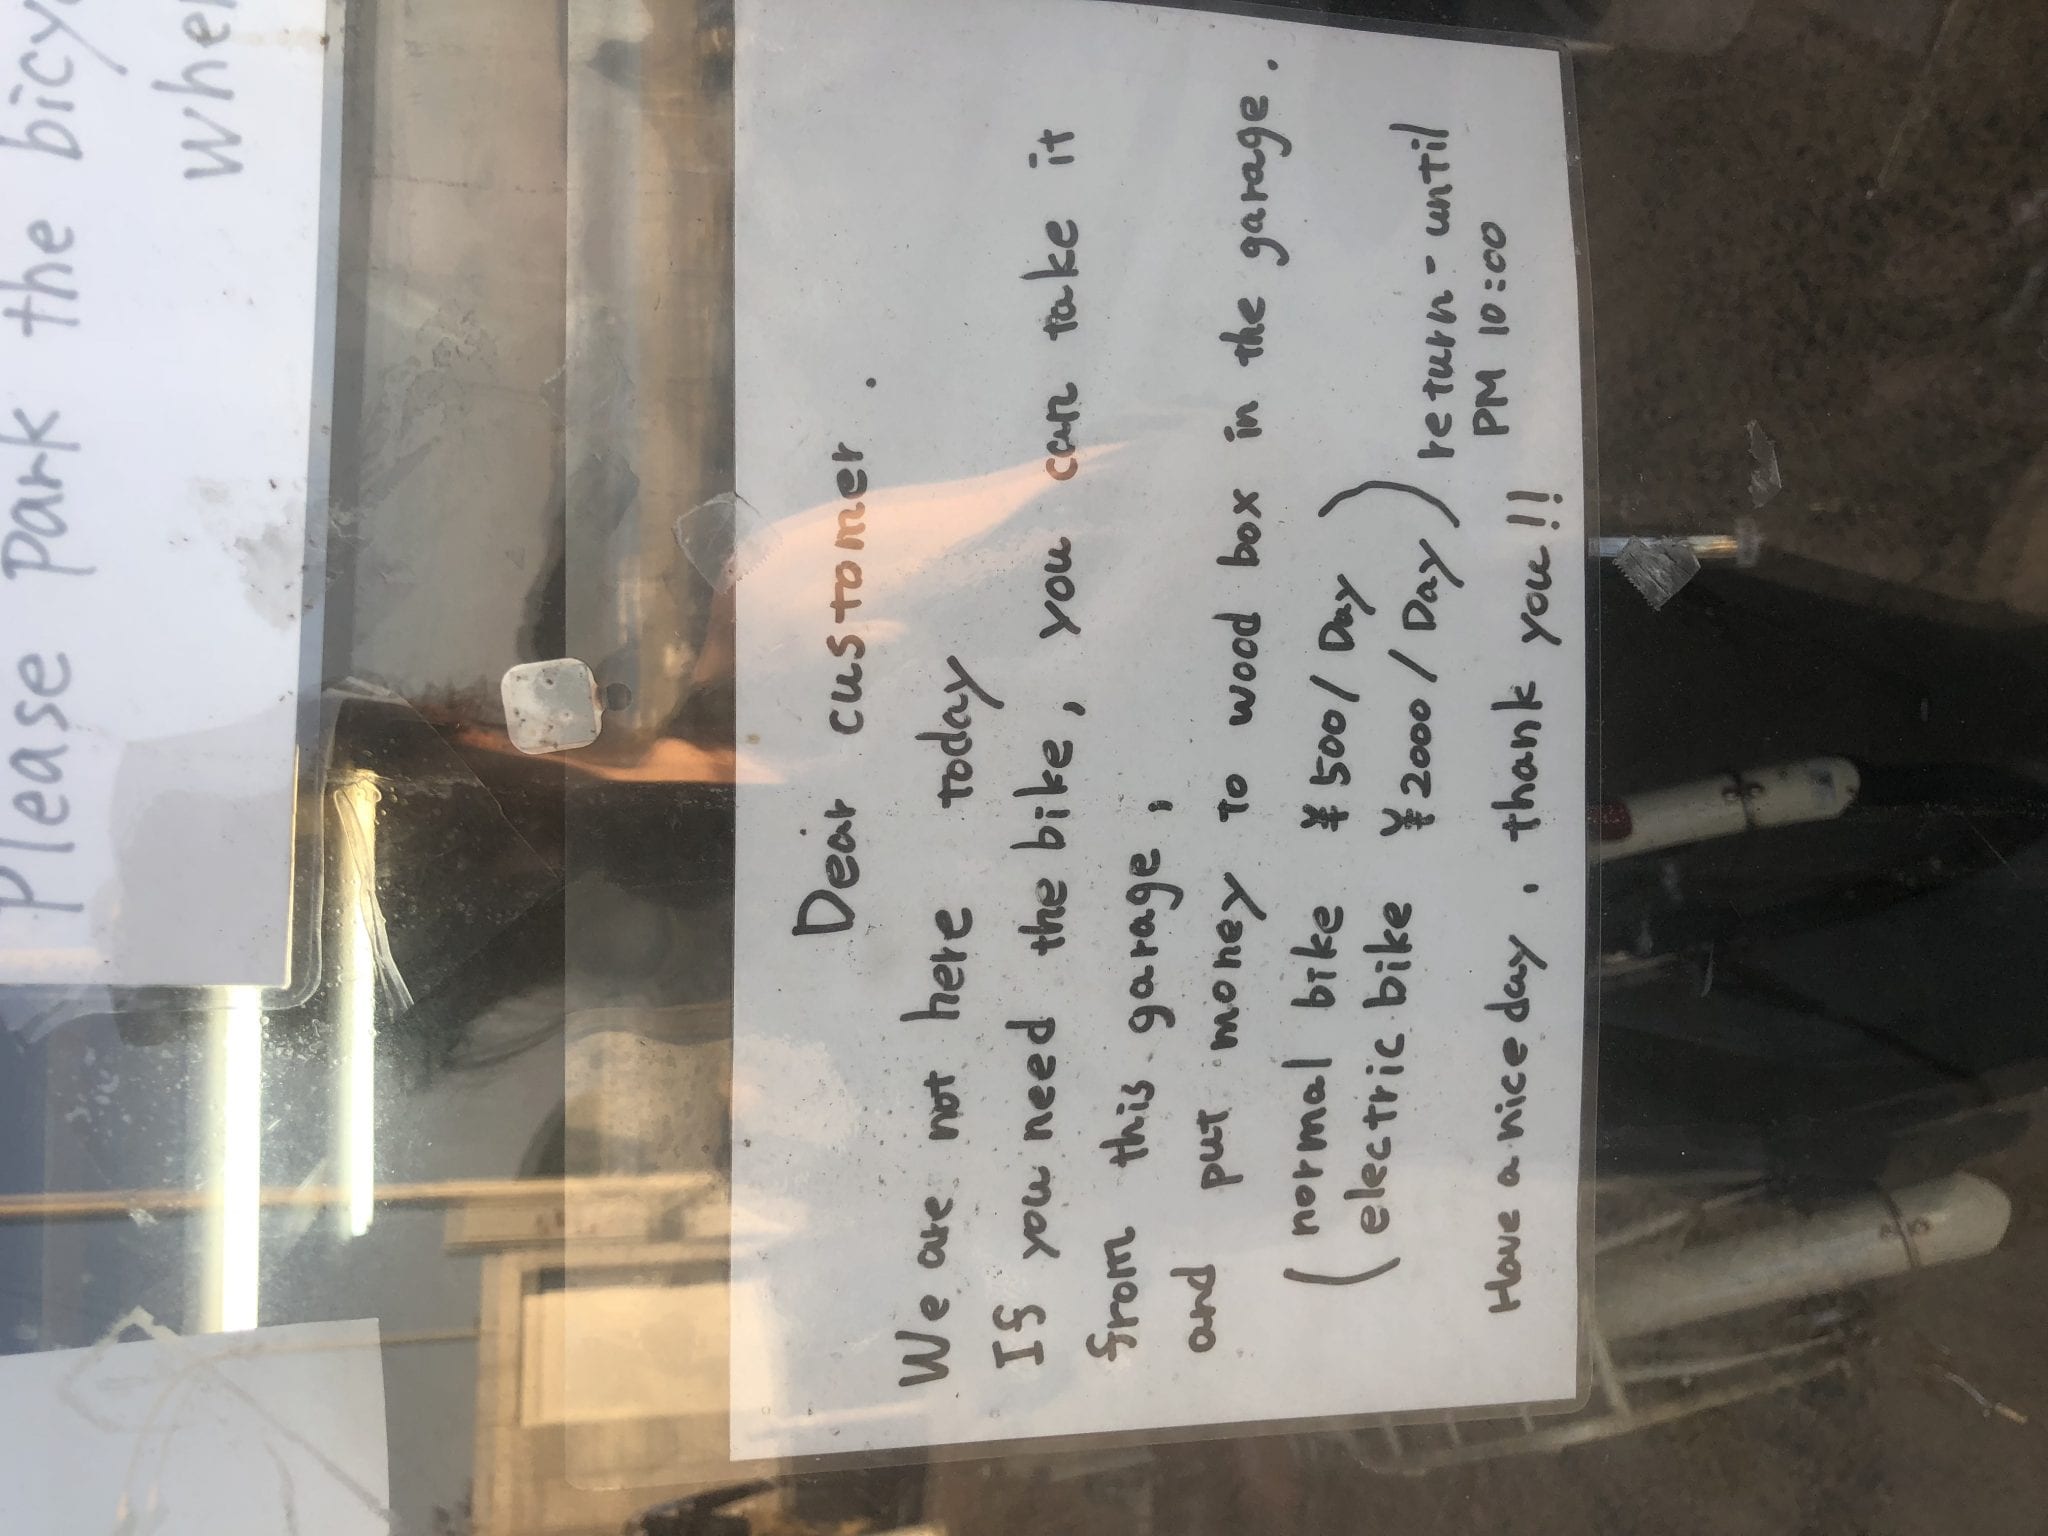 Please park the bicy
when
Dear customer.
We are not here today
If you need the bike, you can take it
from this garage,
and put money to wood box in the garage.
(normal bike ¥500/Day)
(electric bike ¥2000/Day) return-until
PM 10:00
Have a nice day. thank you!!